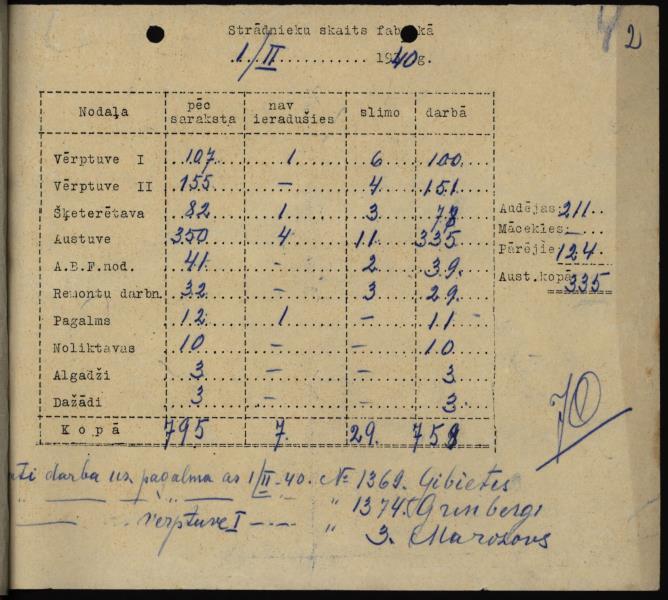 2
Strādnieku skaits fabrikā
1/II 1940 g.
Nodaļa pēc saraksta nav ieradušies slimo darbā
Vērptuve I 107 1 6 100
Vērptuve II 155 – 4 151
Šķeterētava 82 1 3 78
Austuve 350 4 11 335
A.B.F.nod. 41 – 2 39
Remontu darbn. 32 – 3 29
Pagalms 12 1 – 11
Noliktavas 10 – – 10
Algadži 3 – – 3
Dažādi 3 – – 3
Kopā 795 7 29 759
Audējas 211
Mācekles –
Pārējie 124
Aust.kopā 335
darba uz pagalma as 1/II-40. № 1369. Gibietes
" 13745 Grinbergs
vērptuve I " 3. Marozovs